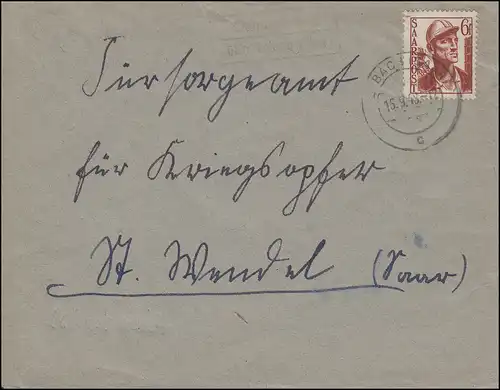 SAARPOST
6
Fürsorgeamt
für Kriegsopfer
St. Wendel (Saar)